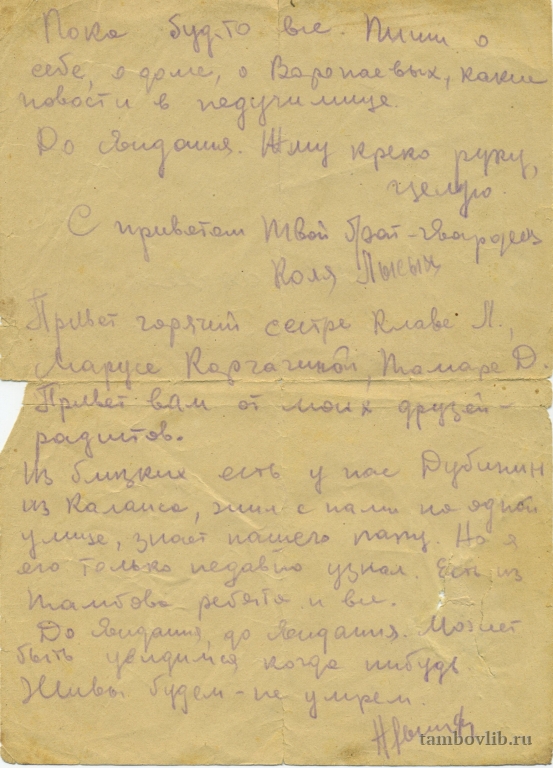 Пока будто все. Пиши о
себе, о доме, о Варопаевых, какие
новости в педучилище.
До свидания. Жму креко руку,
целую.
С приветом твой брат-гвардеец
Коля Лысых
Привет горячий сестре Клаве Л.,
Марусе Карчагиной, Тамаре Д.
Привет вам от моих друзей-
радистов.
Из близких есть у нас Дубинин
из Каланса, жил с нами на одной
улице, знает нашего папу. Но я
его только недавно узнал. Есть из
Тамбова ребята и все.
До свидания, до свидания. Может
быть увидимся когда нибудь
Живы будем - не умрем.
tambovlib.ru